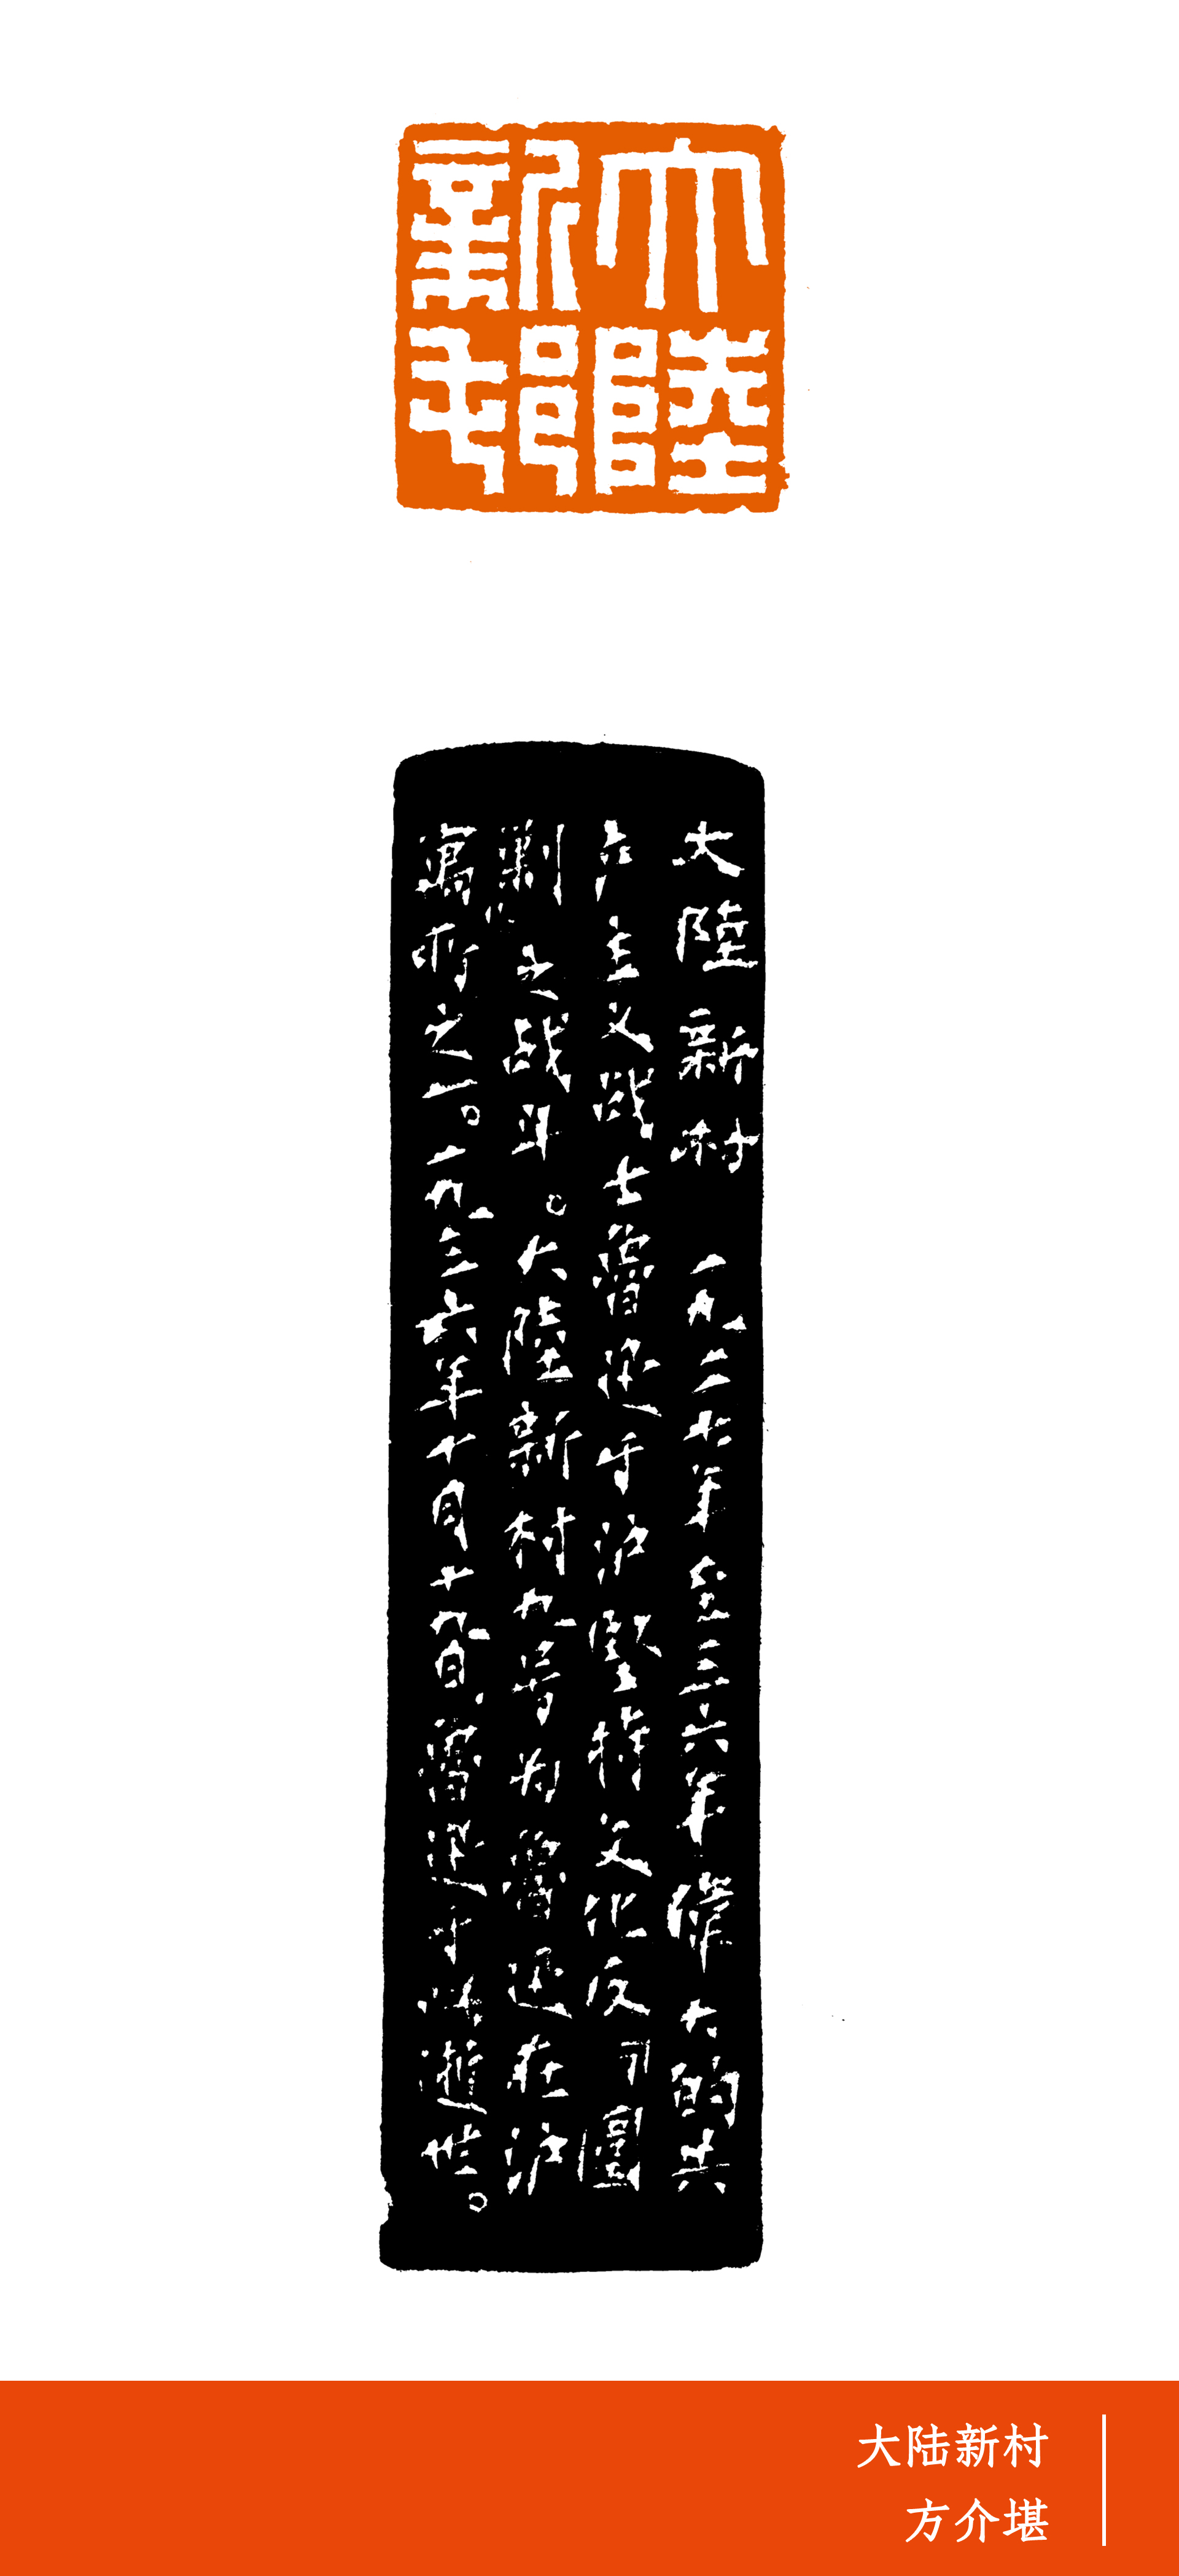 大陸
新邨
大陸新村 一九二七年至三六年偉大的共
产主义战士魯迅于沪堅持文化反『圍
剿』之战斗。大陸新村九号为魯迅在沪
寓所之一。一九三六年十月十九日，魯迅于此逝世。
大陆新村
方介堪